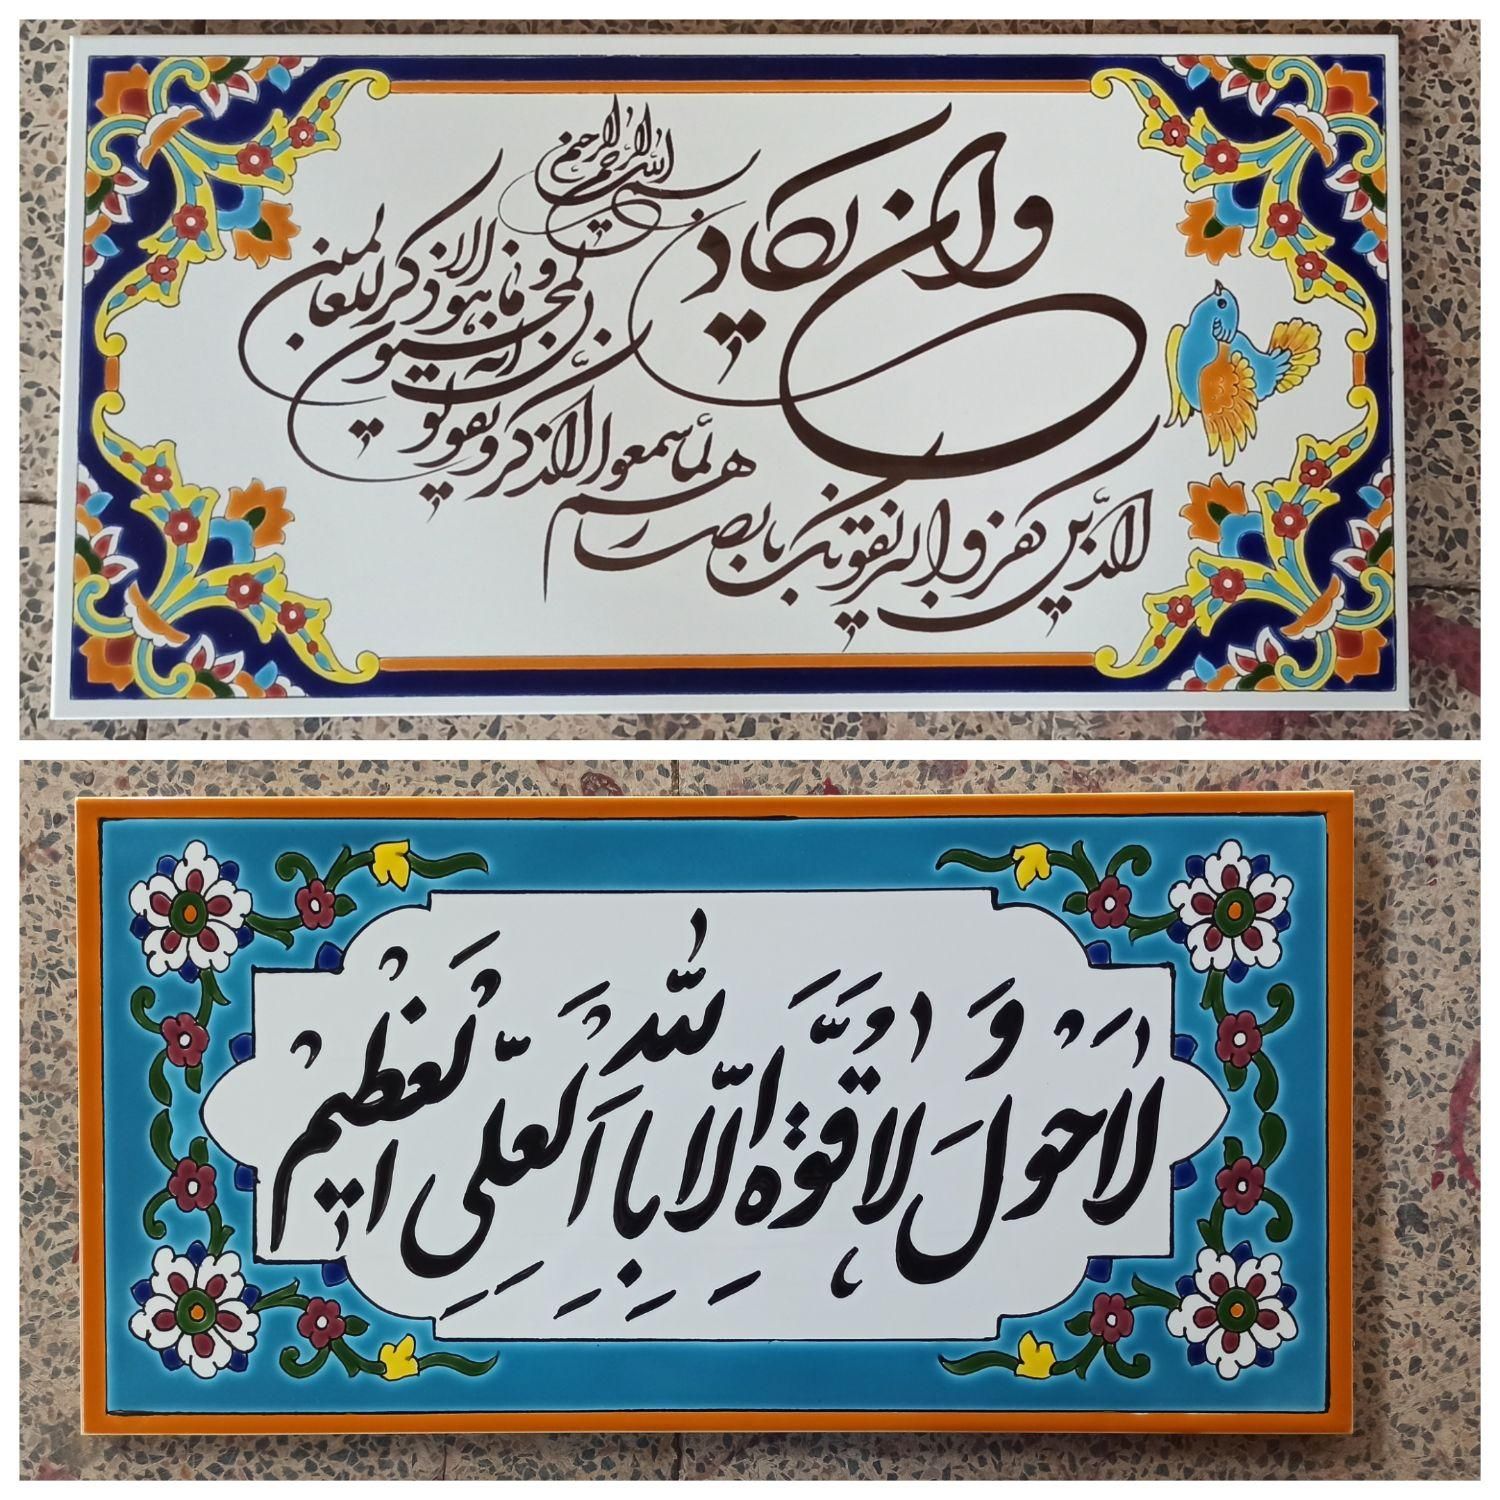 بسم الله الرحمن الرحیم
وان یکاد
الذین کفروا لیزلقونک بابصارهم لما سمعوا الذکر و یقولون انه لمجنون
و ما هو الا ذکر للعالمین
لَا حَوْلَ وَ لَا قُوَّةَ اِلَّا بِاللّٰهِ الْعَلِیِّ الْعَظیمِ